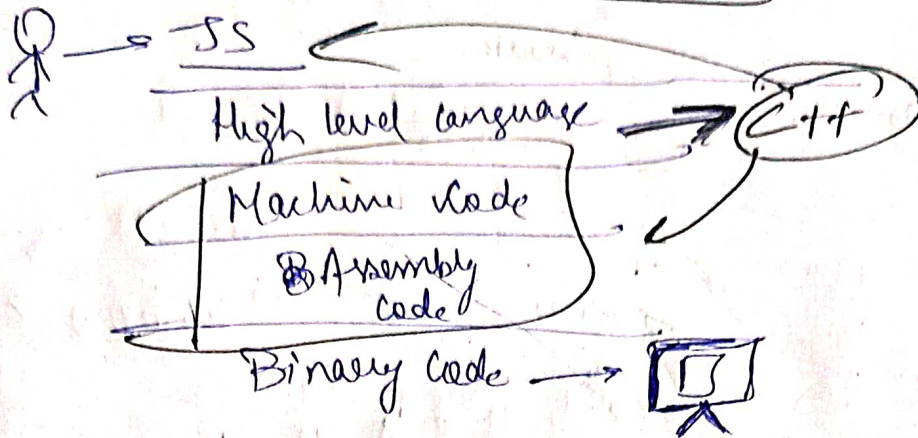 JS
High level language C++
Machine Kode
Assembly
Code
Binary Code